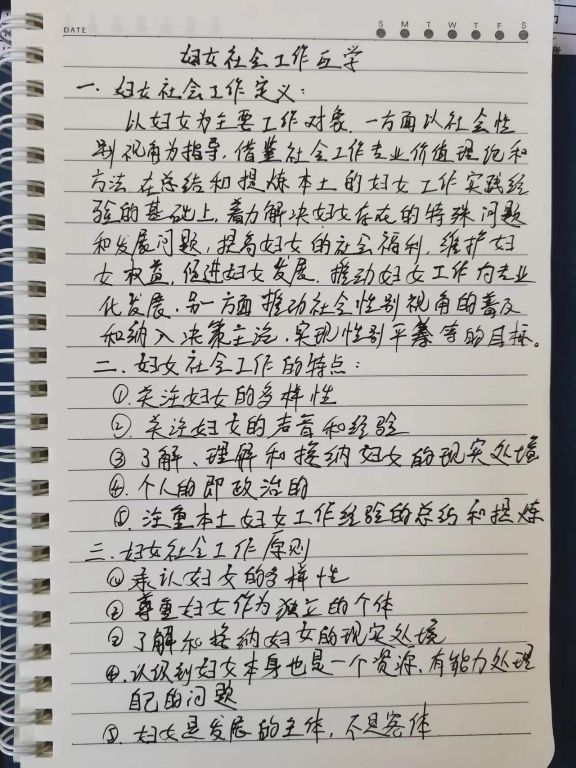 DATE
S M T W T F S
妇女社会工作互学
一、妇女社会工作定义：
以妇女为主要工作对象，一方面以社会性
别视角为指导，借鉴社会工作专业价值理论和
方法，在总结和提炼本土的妇女工作实践经
验的基础上，着力解决妇女存在的特殊问题
和发展问题，提高妇女的社会福利，维护妇
女权益，促进妇女发展，推动妇女工作向专业
化发展，另一方面推动社会性别视角的普及
和纳入决策主流，实现性别平等的目标。
二、妇女社会工作的特点：
①关注妇女的多样性
②关注妇女的声音和经验
③了解、理解和接纳妇女的现实处境
④个人的即政治的
⑤注重本土妇女工作经验的总结和提炼
三、妇女社会工作原则
①承认妇女的多样性
②尊重妇女作为独立的个体
③了解和接纳妇女的现实处境
④认识到妇女本身也是一个资源，有能力处理
自己的问题
⑤妇女是发展的主体，不是客体